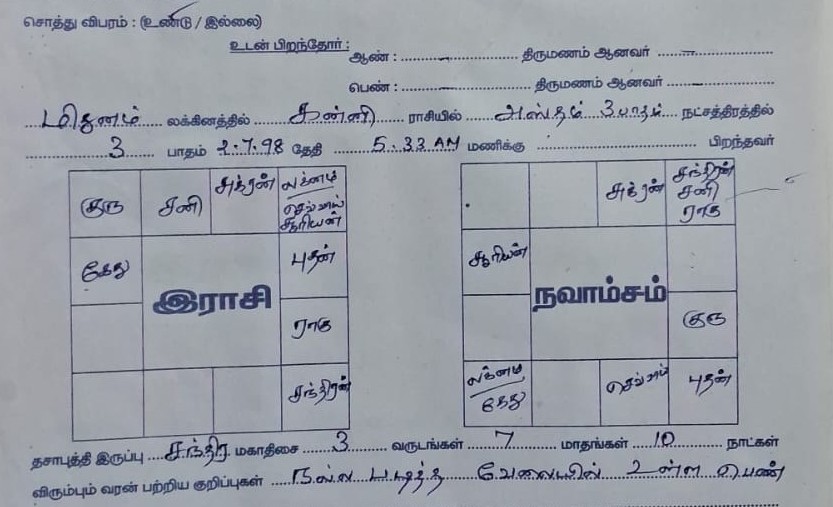 சொத்து விபரம் : (உண்டு / இல்லை)
உடன் பிறந்தோர் :
ஆண் : திருமணம் ஆனவர்
பெண் : திருமணம் ஆனவர்
மிதுனம் லக்கினத்தில் கன்னி ராசியில் அஸ்தம் 3 பாதம் நட்சத்திரத்தில்
3 பாதம் 2.7.98 தேதி 5.33 AM மணிக்கு பிறந்தவர்
குரு சனி சுக்ரன் லக்னம் செவ்வாய் சூரியன்
கேது புதன்
இராசி
ராகு
சந்திரன்
சுக்ரன் சந்திரன் சனி ராகு
சூரியன்
நவாம்சம்
குரு
லக்னம் கேது செவ்வாய் புதன்
தசாபுத்தி இருப்பு சந்திர மகாதிசை 3 வருடங்கள் 7 மாதங்கள் 10 நாட்கள்
விரும்பும் வரன் பற்றிய குறிப்புகள் நல்ல படித்த வேலையில் உள்ள பெண்